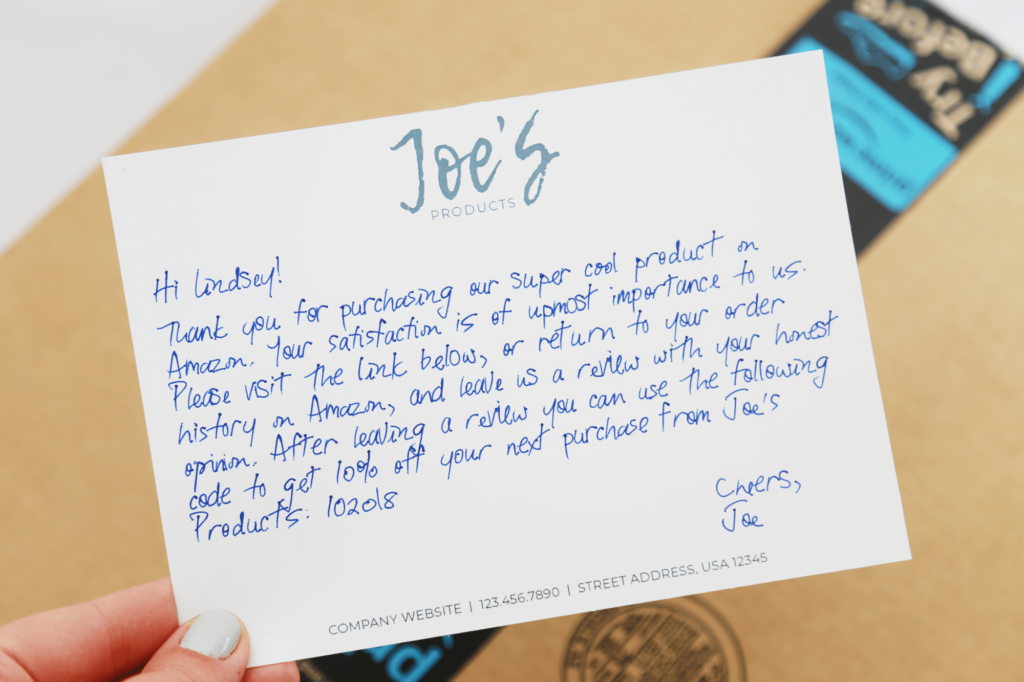 Joe's
PRODUCTS
Hi Lindsey!
Thank you for purchasing our super cool product on
Amazon. Your satisfaction is of upmost importance to us.
Please visit the link below, or return to your order
history on Amazon, and leave us a review with your honest
opinion. After leaving a review you can use the following
code to get 10% off your next purchase from Joe's
Products: 102018
Cheers,
Joe
COMPANY WEBSITE | 123.456.7890 | STREET ADDRESS, USA 12345
Try
Before